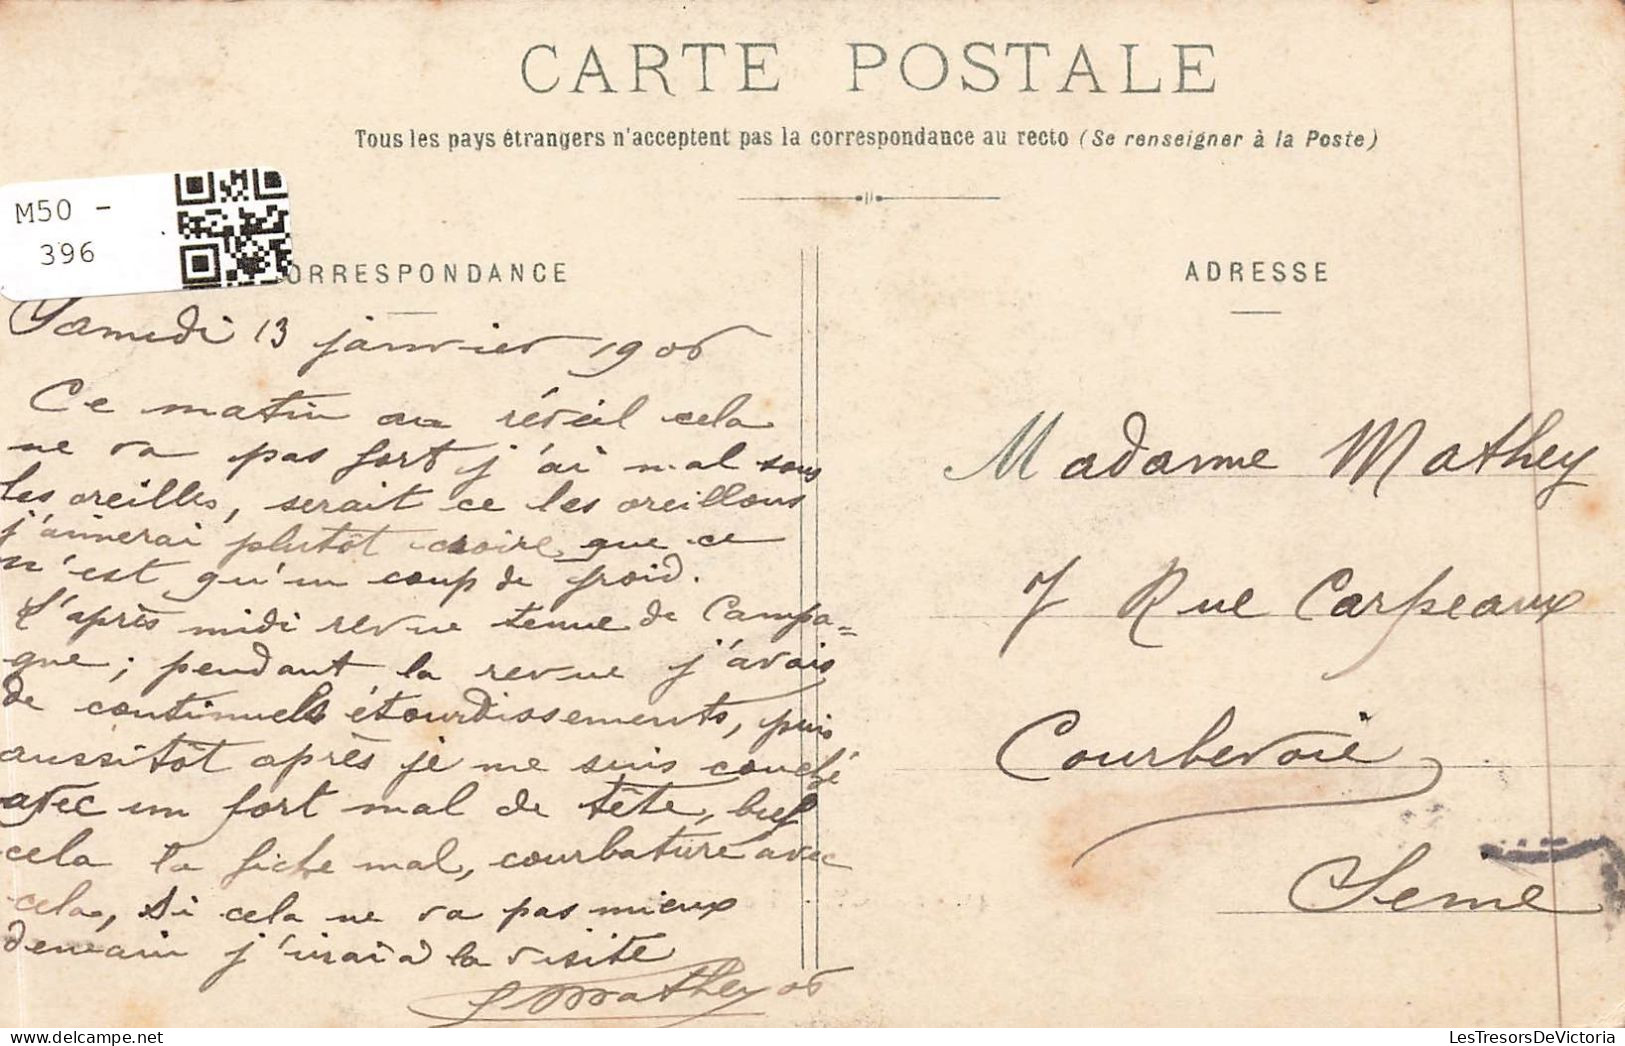 CARTE POSTALE
Tous les pays étrangers n'acceptent pas la correspondance au recto (Se renseigner à la Poste)
M50 -
396
ORRESPONDANCE
Samedi 13 janvier 1906
Ce matin au réveil cela
ne va pas fort j'ai mal sous
les oreilles, serait ce les oreillons
j'aimerai plutôt croire que ce
n'est qu'un coup de froid.
L'après midi revue tenue de Campa=
gne; pendant la revue j'avais
de continuels étourdissements, puis
aussitôt après je me suis couché
avec un fort mal de tête, bref
cela la fiche mal, courbature avec
cela, si cela ne va pas mieux
demain j'irai à la visite
Mathey 06
ADRESSE
Madame Mathey
7 Rue Carpeaux
Courbevoie
Seine
LesTresorsDeVictoria